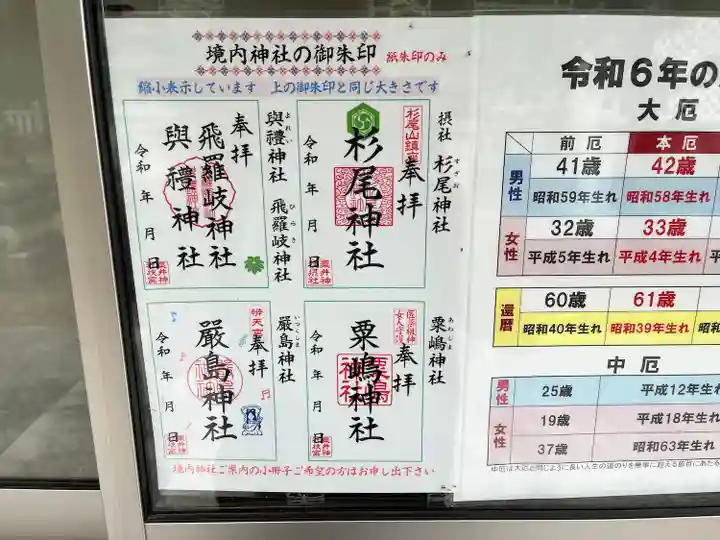 境内神社の御朱印 紙朱印のみ
縮小表示しています 上の御朱印と同じ大きさです
摂社 杉尾神社
すぎお
杉尾山鎮座
奉拝
杉尾神社
令和 年 月 日
與禮神社 飛羅岐神社
よれい ひらき
奉拝
飛羅岐神社
與禮神社
令和 年 月 日
粟嶋神社
あわしま
奉拝
粟嶋神社
令和 年 月 日
嚴島神社
いつくしま
辨天宮
奉拝
嚴島神社
令和 年 月 日
境内神社ご案内の小冊子ご希望の方はお申し出下さい
令和6年の
大厄
前厄 本厄
男性 41歳 42歳
昭和59年生れ 昭和58年生れ
女性 32歳 33歳
平成5年生れ 平成4年生れ
還暦 60歳 61歳
昭和40年生れ 昭和39年生れ
中厄
男性 25歳 平成12年生
女性 19歳 平成18年生
37歳 昭和63年生
中厄は大厄と同じように長い人生の道のりを無事に超える節目にあた